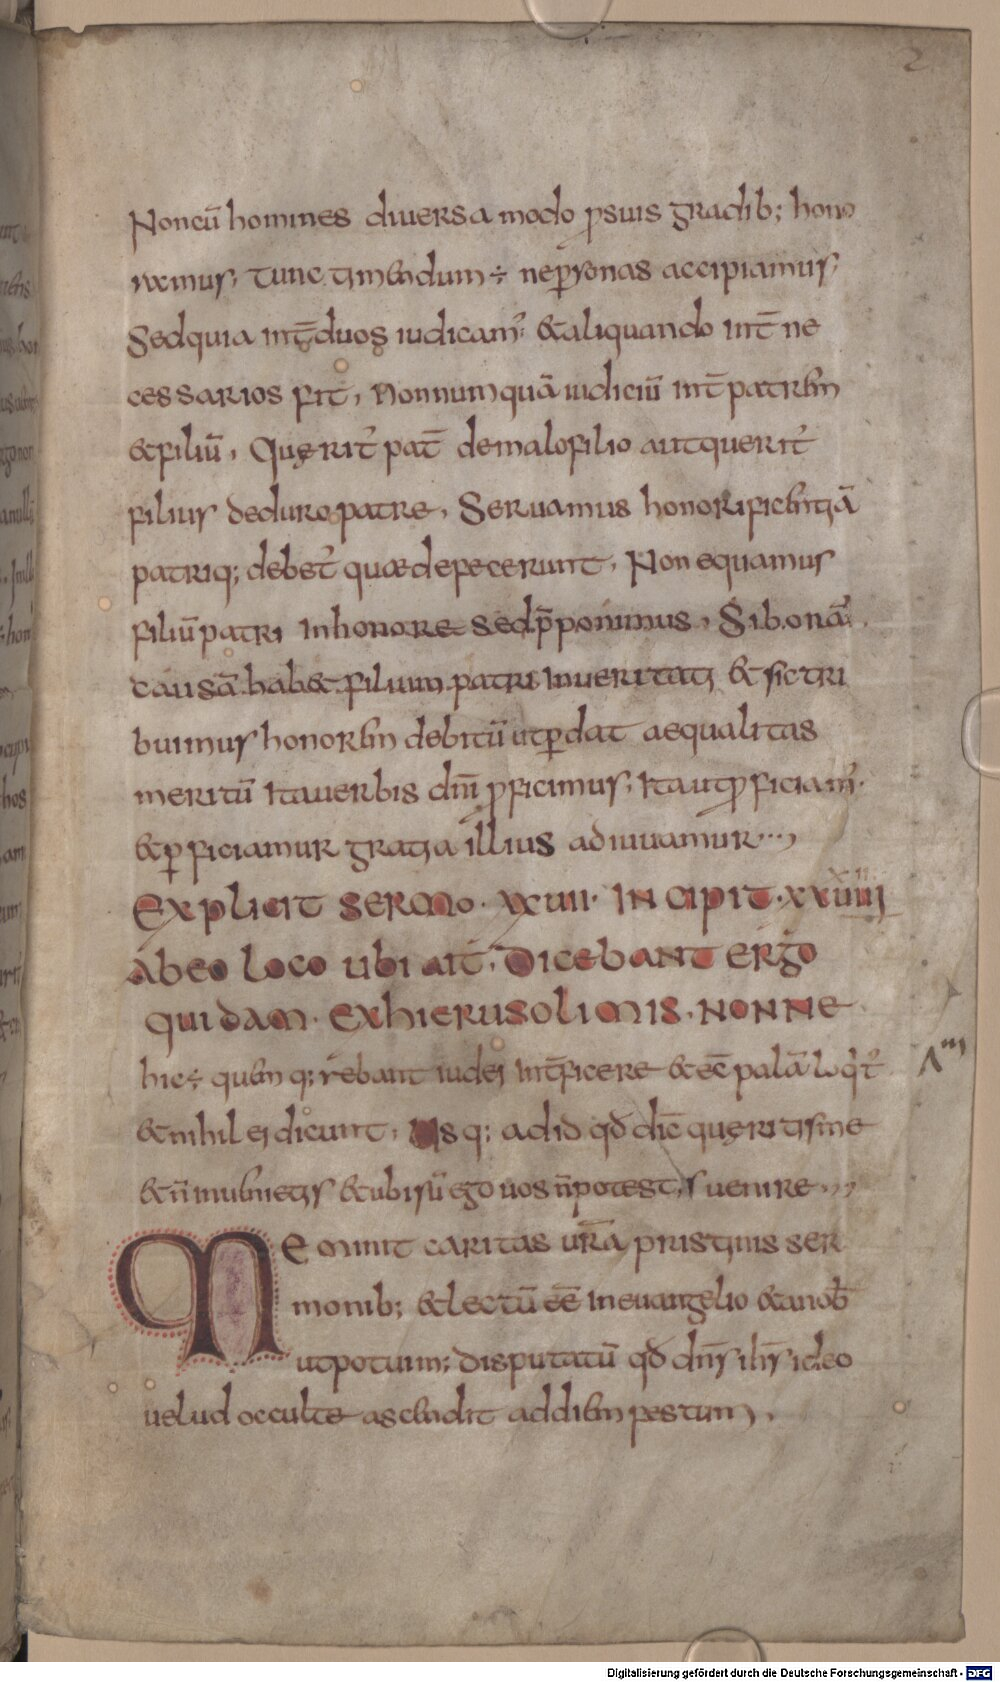 2
Noncū homines diuersa modo ꝓsuis gradib; hono
ramus, tunc timendum ÷ neꝑsonas accipiamus,
Sedquia int̄duos iudicam᷒ &aliquando int̄ ne
cessarios fit, Nonnumquā iudiciū int̄ patrem
&filiū, Querit᷒ pat̄ demalofilio autquerit᷒
filius deduro patre, Seruamus honorificentiā
patriq; debet᷒ quae defecerunt, Non equamus
filiū patri Inhonore sedp̄ponimus, Si bonā
causā hab& filium patri Inueritati &sictri
buimus honorem debitū utꝑdat aequalitas
meritū Ita uerbis dn̄i ꝓficimus, Ita utꝓficiam᷒
&ꝑficiamur gratia illius adiuuamur
Explicit sermo. xxiii. Incipit. xxiiii
Abeo loco ubi ait, Dicebant ergo
quidam. exhierusolimis. nonne
hic÷ quem q;rebant iudei Int̄ficere &ec̄ palā loq̄t᷒
&nihil ei dicunt, usq; adid qđ dic̄ queritisme
&n̄ inuenietis &ubisū ego uos n̄potestis uenire
Meminit caritas ur̄a pristinis ser
monib; &lectū eē Ineuangelio &anob̄
utpotuim; disputatū qđ dn̄s ih̄s ideo
uelud occulte ascendit addiem festum,
Digitalisierung gefördert durch die Deutsche Forschungsgemeinschaft - DFG